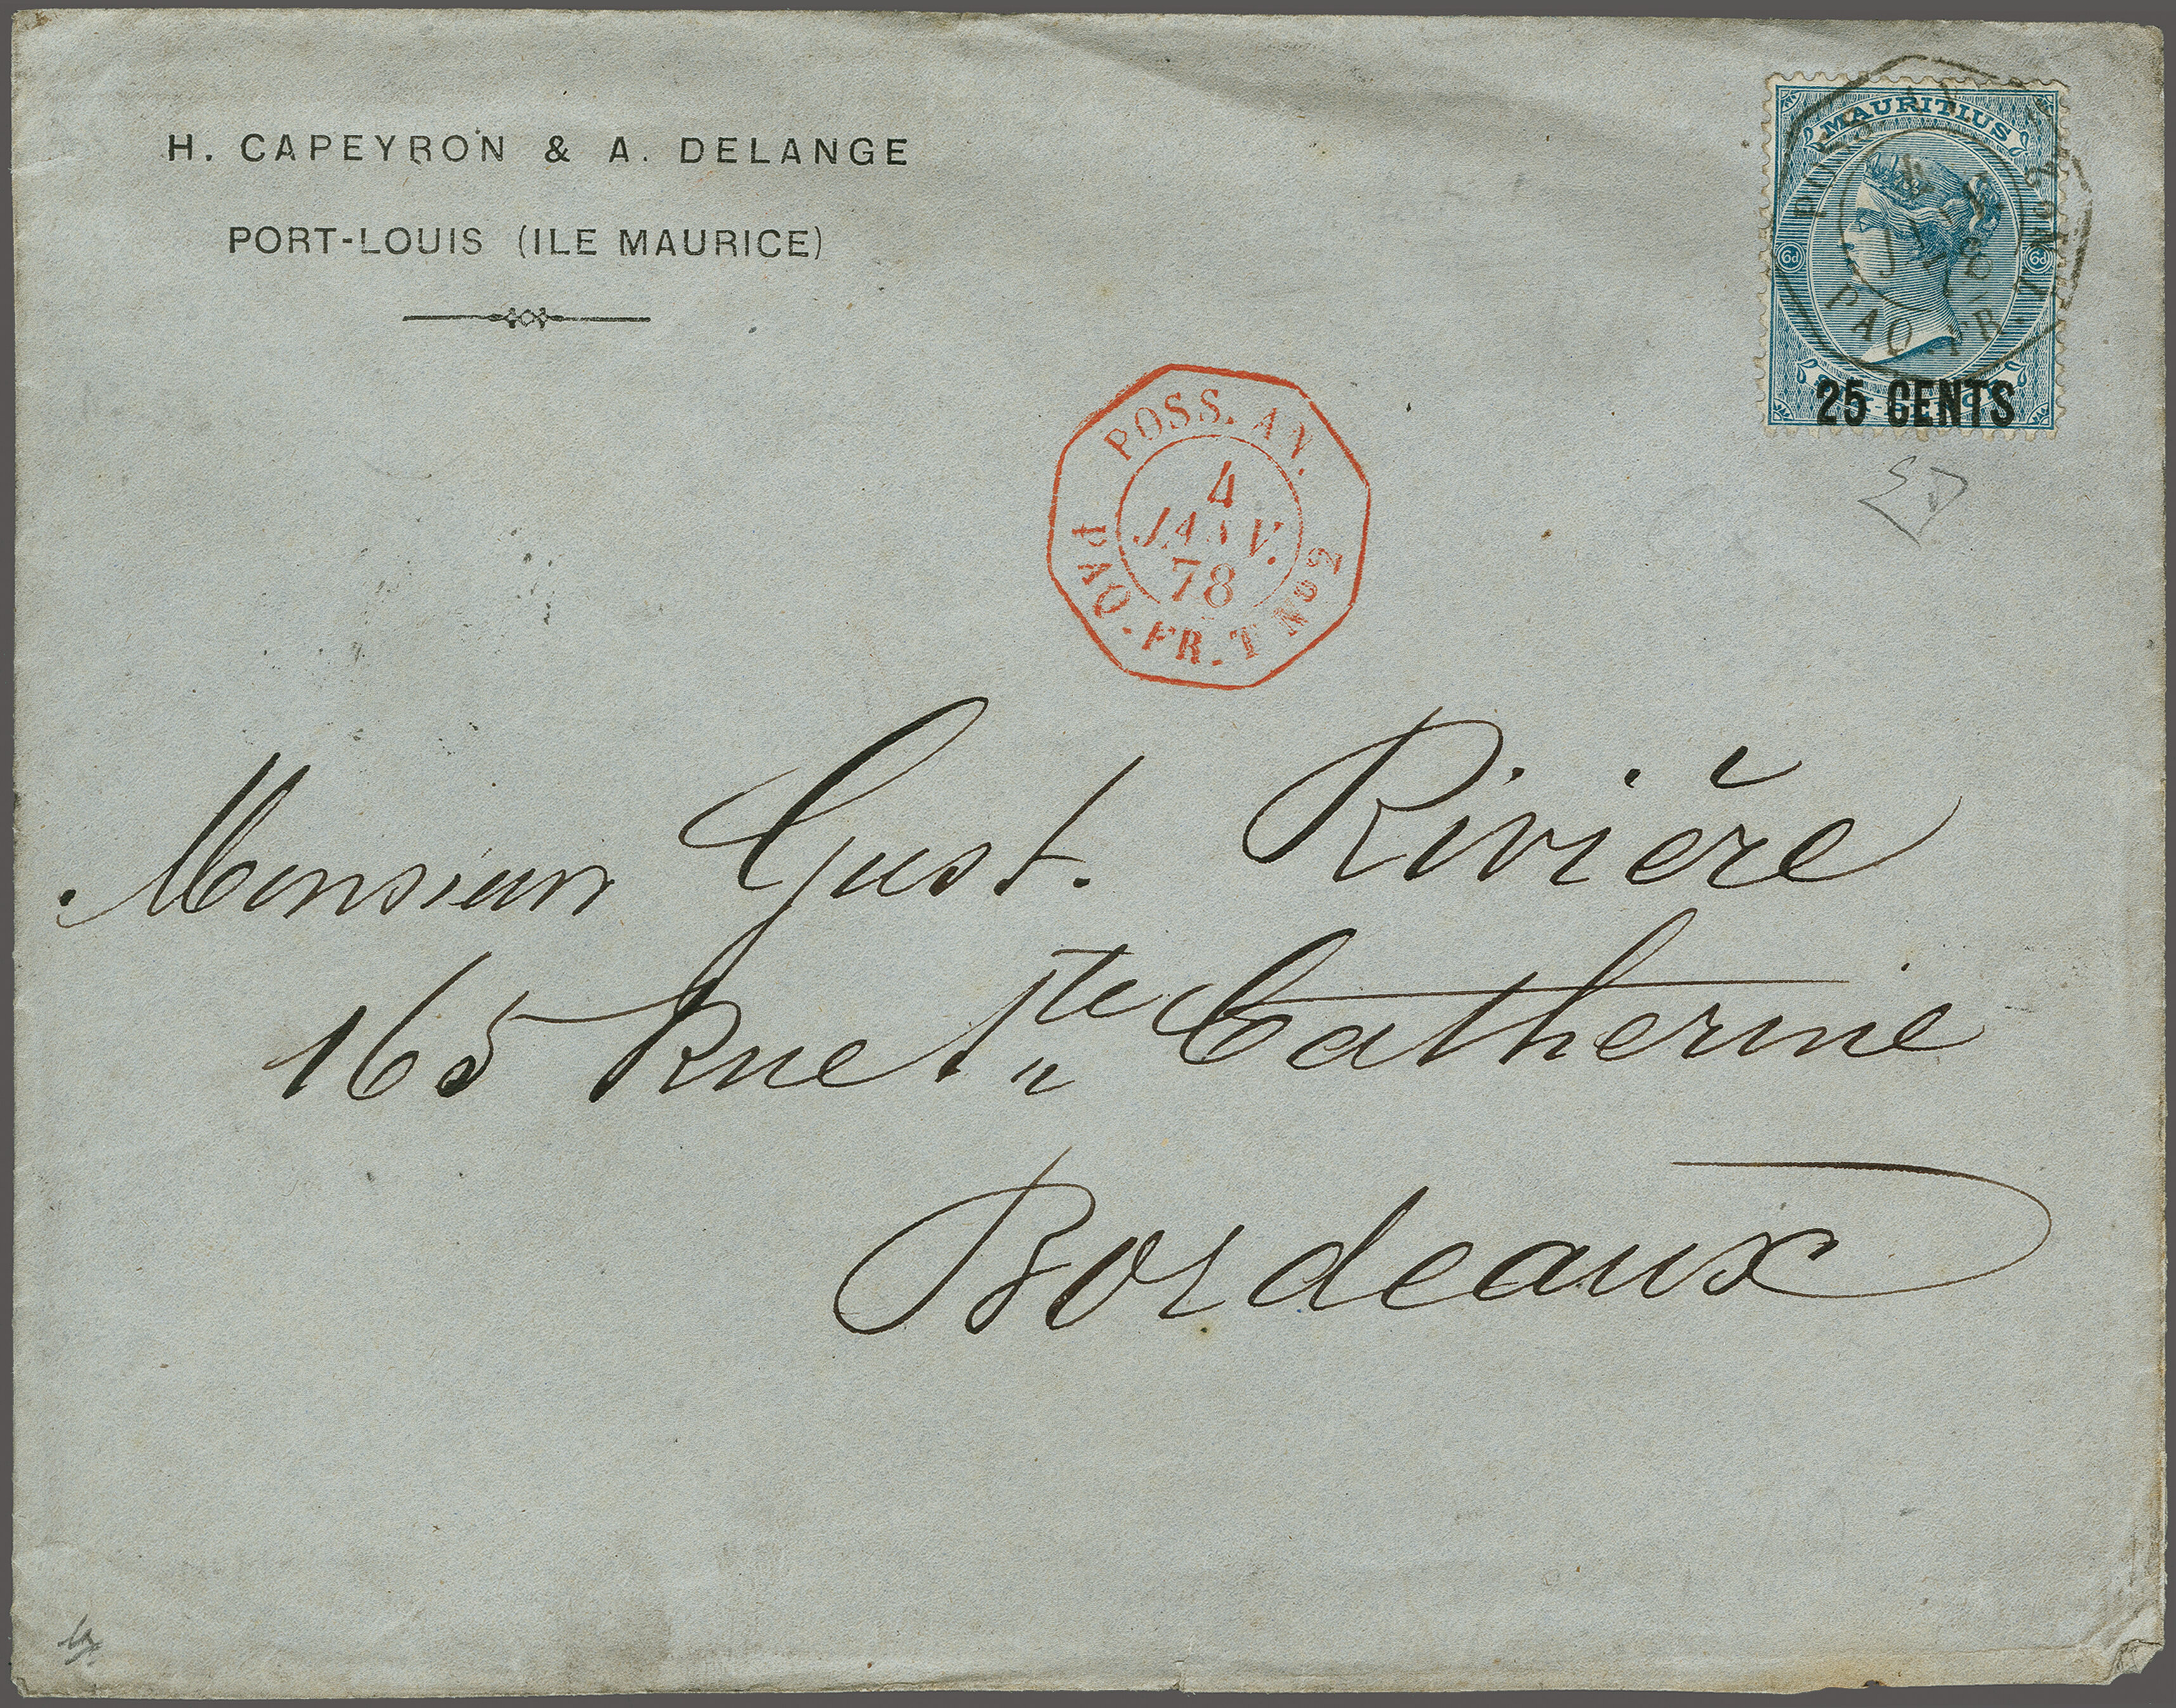 H. CAPEYRON & A. DELANGE
PORT-LOUIS (ILE MAURICE)
MAURITIUS
6d 6d
25 CENTS
PAQ. FR.
POSS. AN.
4
JANV.
78
PAQ. FR. T No 2
Monsieur Gust. Rivière
165 Rue Ste Catherine
Bordeaux